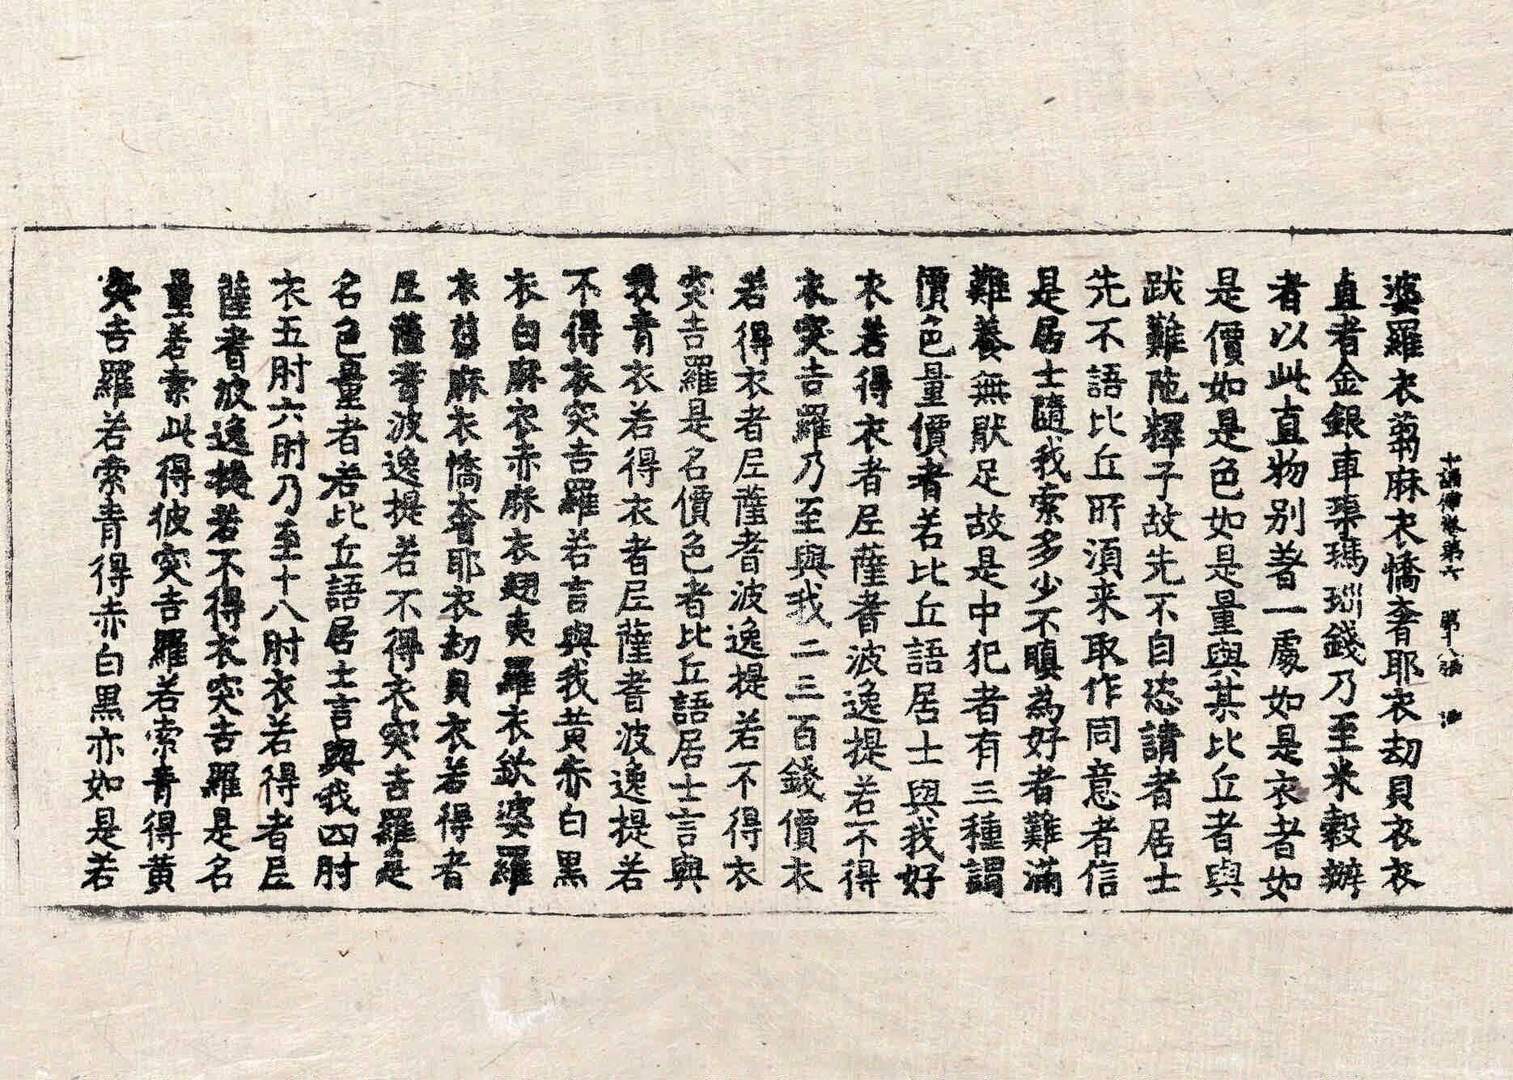 十誦律卷第六 第十八張 油
婆羅衣蒭麻衣憍奢耶衣劫貝衣衣
直者金銀車𤦲瑪瑙錢乃至米穀辦
者以此直物別著一處如是衣者如
是價如是色如是量與某比丘者與
跋難陁釋子故先不自恣請者居士
先不語比丘所湏来取作同意者信
是居士隨我索多少不瞋為好者難滿
難養無猒足故是中犯者有三種謂
價色量價者若比丘語居士與我好
衣若得衣者尼薩耆波逸提若不得
衣突吉羅乃至與我二三百錢價衣
若得衣者尼薩耆波逸提若不得衣
突吉羅是名價色者比丘語居士言與
我青衣若得衣者尼薩耆波逸提若
不得衣突吉羅若言與我黄赤白黒
衣白麻衣赤麻衣翅夷羅衣欽婆羅
衣蒭麻衣憍奢耶衣劫貝衣若得者
尼薩耆波逸提若不得衣突吉羅是
名色量者若比丘語居士言與我四肘
衣五肘六肘乃至十八肘衣若得者尼
薩耆波逸提若不得衣突吉羅是名
量若索此得彼突吉羅若索青得黄
突吉羅若索青得赤白黒亦如是若